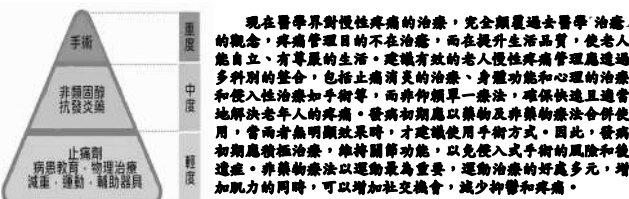 手術
非類固醇
抗發炎藥
止痛劑
病患教育、物理治療
減重、運動、輔助器具
重度
中度
輕度
現在醫學界對慢性疼痛的治療，完全顛覆過去醫學"治癒"
的觀念，疼痛管理目的不在治癒，而在提升生活品質，使老人
能自立、有尊嚴的生活。建議有效的老人慢性疼痛管理應透過
多科別的整合，包括止痛消炎的治療、身體功能和心理的治療
和侵入性治療如手術等，而非仰賴單一療法，確保快速且適當
地解決老年人的疼痛。發病初期應以藥物及非藥物療法合併使
用，當兩者無明顯效果時，才建議使用手術方式。因此，發病
初期應積極治療，維持關節功能，以免侵入式手術的風險和後
遺症。非藥物療法以運動最為重要，運動治療的好處多元，增
加肌力的同時，可以增加社交機會，減少抑鬱和疼痛。